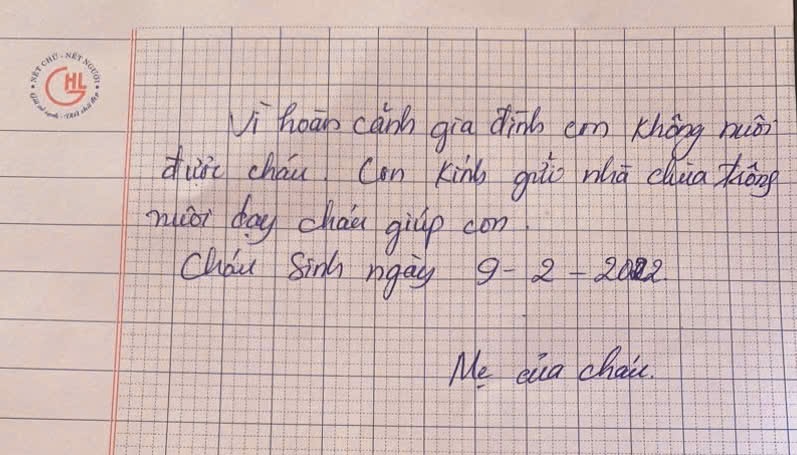 NÉT CHỮ - NẾT NGƯỜI
HL
Giữ vở sạch - Viết chữ đẹp
Vì hoàn cảnh gia đình em không nuôi
được cháu. Con kính gửi nhà chùa trông
nuôi dạy cháu giúp con.
Cháu sinh ngày 9-2-2022.
Mẹ của cháu.